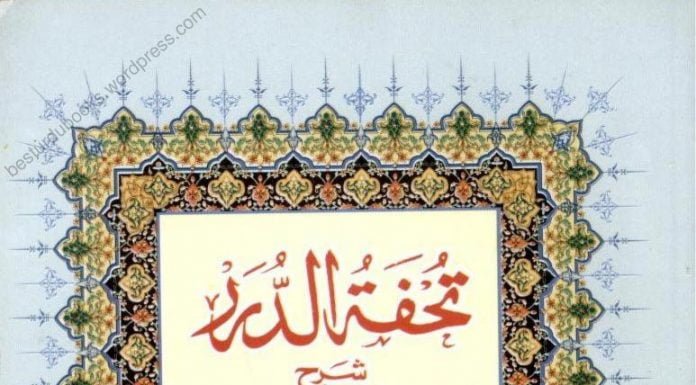 besturdubooks.wordpress.com
تُحْفَةُ الدُّرَرْ
شَرح